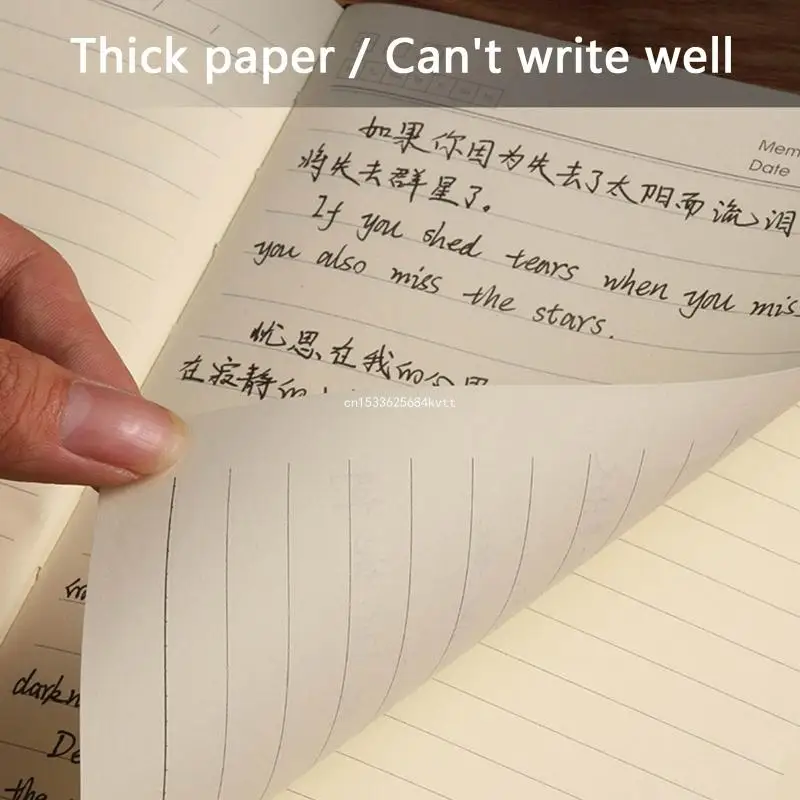 Thick paper / Can't write well
Date
如果你因为失去了太阳而流泪
将失去群星了。
If you shed tears when you
you also miss the stars.
忧思在我的
在寂静的
cn1533625684kvtt
the